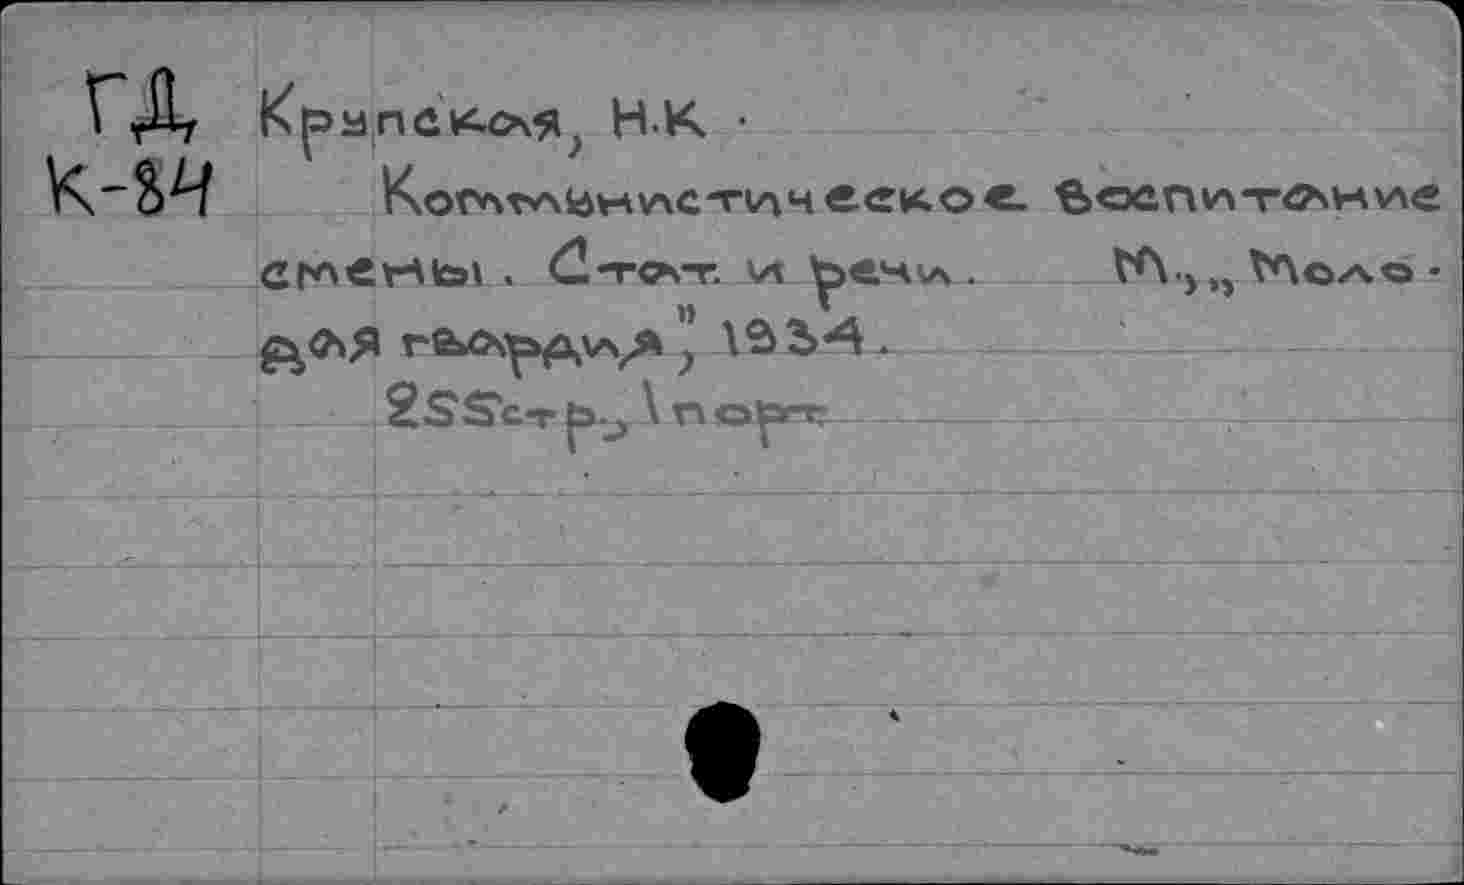 ГД Крупская, Н.К.
К-84 Коммунистическое воспитание
смены. Стат. и речи. М., „Моло-
дая гвардия", 1934.
255стр., 1 порт.